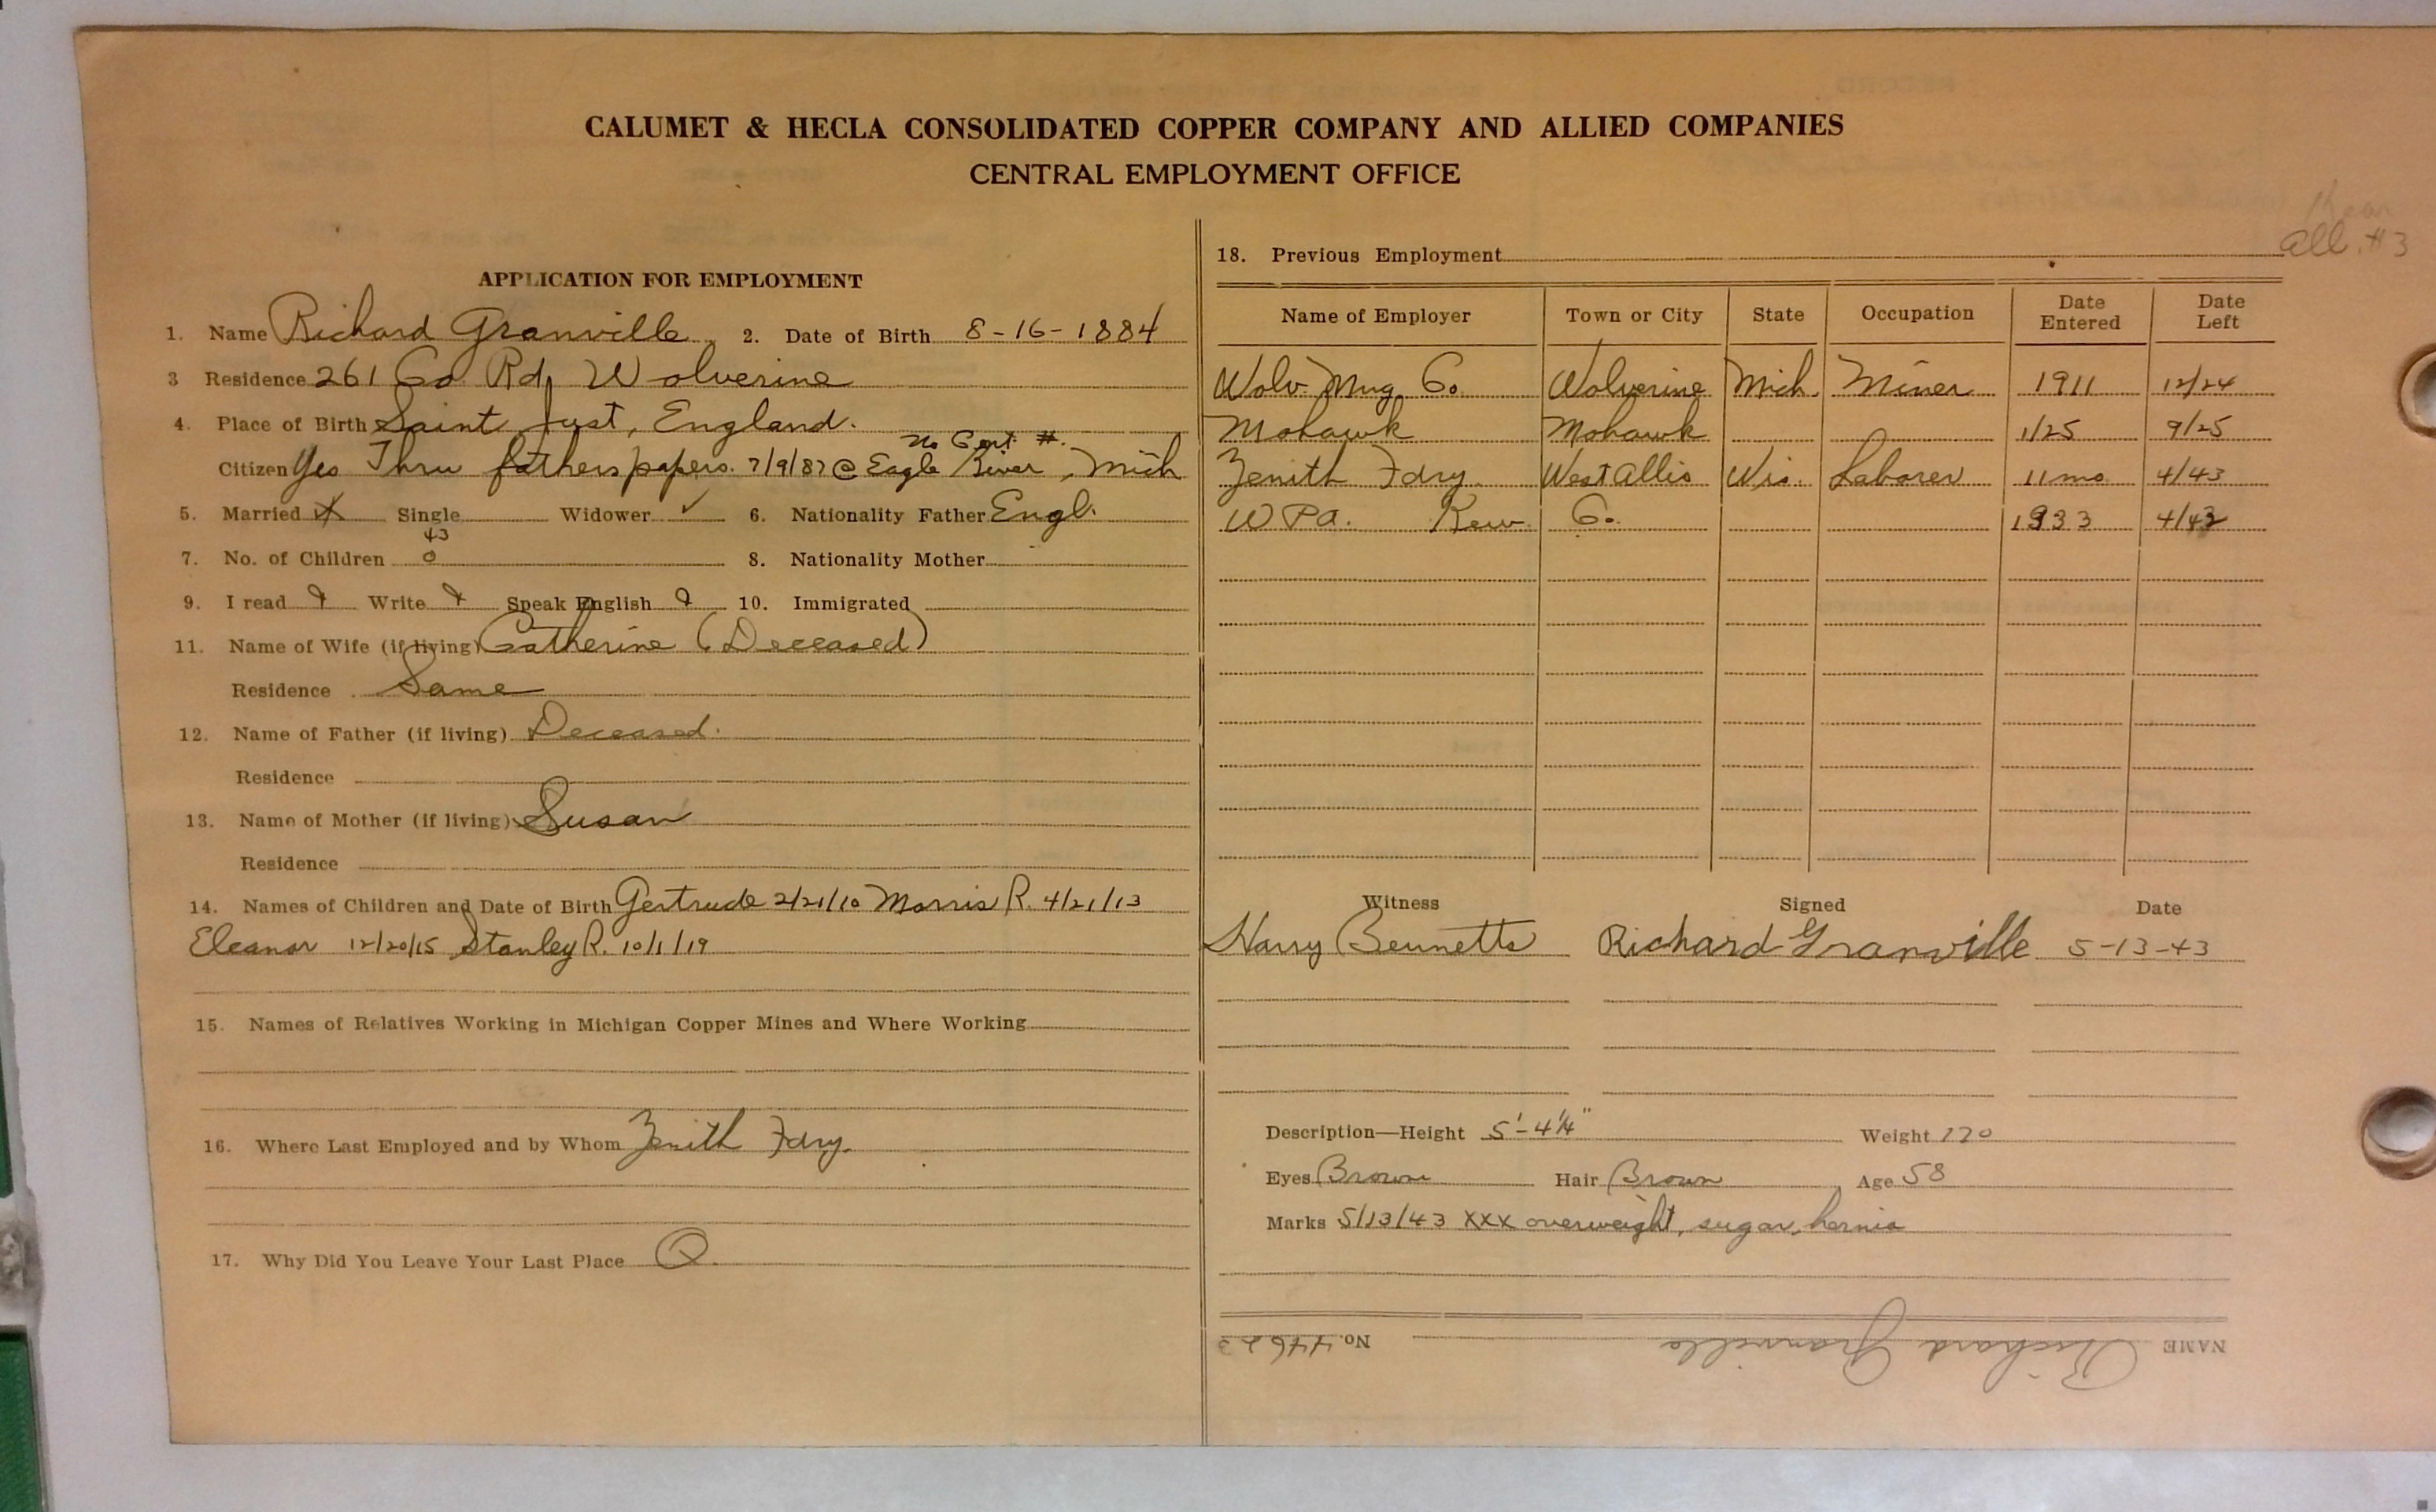 CALUMET & HECLA CONSOLIDATED COPPER COMPANY AND ALLIED COMPANIES
CENTRAL EMPLOYMENT OFFICE
APPLICATION FOR EMPLOYMENT
1. Name Richard Granville 2. Date of Birth 8-16-1884
3 Residence 261 Co Rd, Wolverine
4. Place of Birth Saint Just, England.
no Cert #.
Citizen Yes Thru fathers papers. 7/9/87 @ Eagle River, Mich
5. Married Single Widower ✓ 6. Nationality Father Engl.
43
7. No. of Children 0 8. Nationality Mother
9. I read Write Speak English 10. Immigrated
11. Name of Wife (if living) Catherine (Deceased)
Residence Same
12. Name of Father (if living) Deceased.
Residence
13. Name of Mother (if living) Susan
Residence
14. Names of Children and Date of Birth Gertrude 2/21/10 Morris R. 4/21/13
Eleanor 12/20/15 Stanley R. 10/1/19
15. Names of Relatives Working in Michigan Copper Mines and Where Working
16. Where Last Employed and by Whom Zenith Fdry.
17. Why Did You Leave Your Last Place Q.
All. #3
18. Previous Employment
Name of Employer Town or City State Occupation Date Entered Date Left
Wolv. Mng Co. Wolverine Mich. Miner 1911 12/24
Mohawk Mohawk 1/25 9/25
Zenith Fdry. West Allis Wis. Laborer 11 mo 4/43
W P A. Kew. Co. 1933 4/42
Witness Signed Date
Harry Bennetts Richard Granville 5-13-43
Description—Height 5'-4¼" Weight 170
Eyes Brown Hair Brown Age 58
Marks 5/13/43 XXX overweight, sugar, hernia
NAME Richard Granville No. 44623